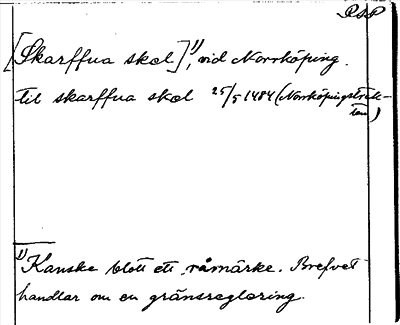 RAP
[Skarffua skel]¹⁾, vid Norrköping.
til skarffua skel 25/5 1484 (Norrköpingstrak-
ten)
¹⁾ Kanske blott ett råmärke. Brefvet
handlar om en gränsreglering.